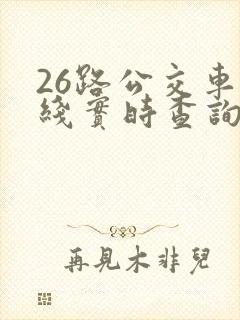 26路公交車
綫實時查詢
再見木非兒